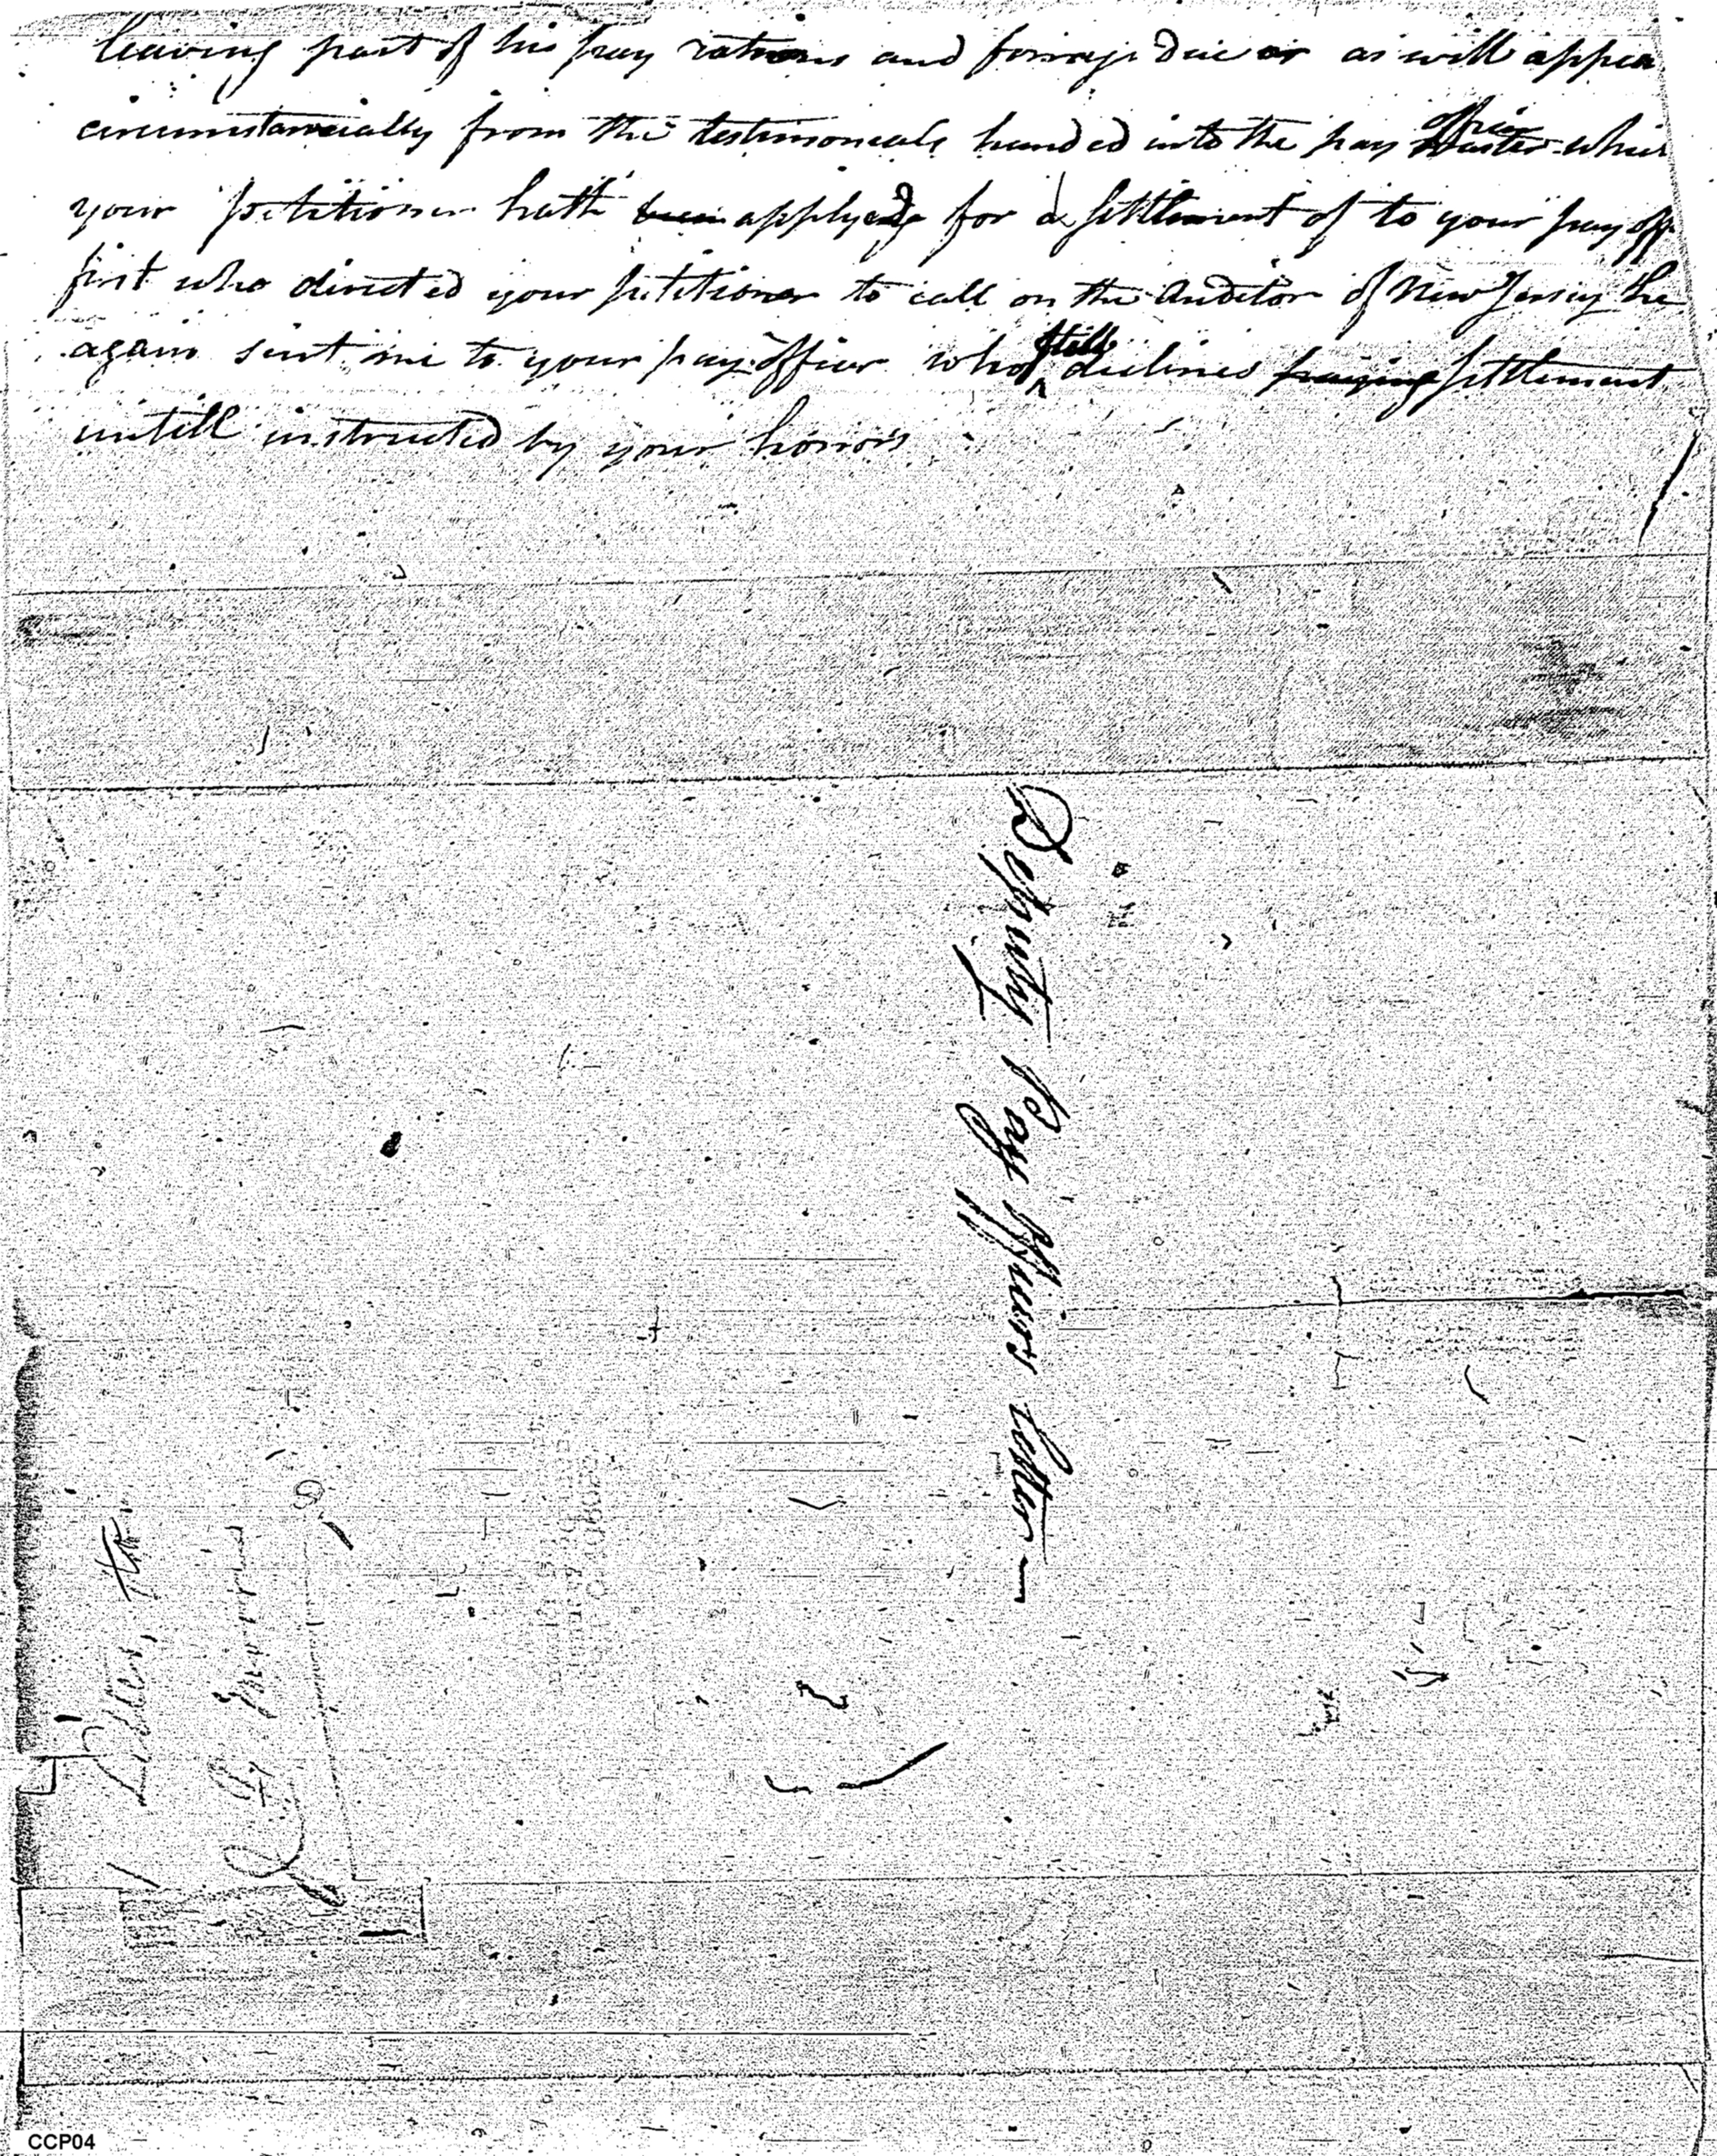 leaving part of his pay rations and forrage due as will appea
circumstancially from the testimonials handed into the pay office which
your petitioner hath applyed for a settlement of to your pay off
first who directed your petitioner to call on the Auditor of New Jersey he
again sent me to your pay officer who still declines settlement
untill instructed by your honors
Deputy Pay Officers letter
CCP04